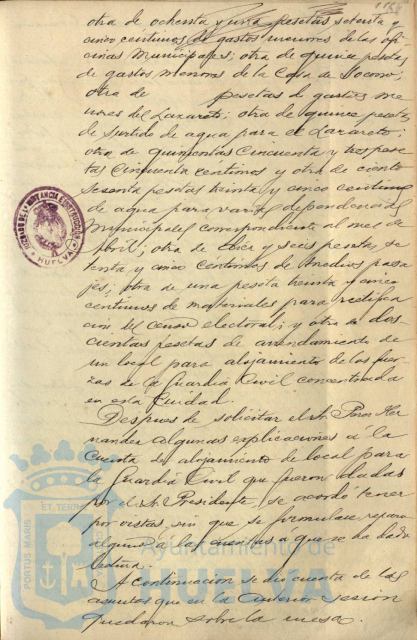 otra de ochenta y una pesetas setenta y
cinco centimos de gastos menores de las ofi
cinas Municipales; otra de quince pesetas
de gastos menores de la Casa de Socorro;
otra de pesetas de gastos me
nores del Lazareto; otra de quince pesetas
de surtido de agua para el Lazareto;
otra de quinientas cincuenta y tres pese
tas cincuenta centimos y otra de ciento
sesenta pesetas treinta y cinco centimos
de agua para varias dependencias
Municipales correspondiente al mes de
Abril; otra de y seis pesetas se
tenta y cinco centimos de medios pasa
jes; otra de una peseta treinta y cinco
centimos de materiales para rectifica
cion del censo electoral; y otra de dos
cientas pesetas de arrendamiento de
un local para alojamiento de las fuer
zas de la Guardia Civil concentrada
en esta Ciudad.
Despues de solicitar el Sr. Peros Her
nandez algunas explicaciones á la
cuenta de alojamiento de local para
la Guardia Civil que fueron dadas
por el Sr. Presidente, se acordó tener
por vistas, sin que se formulase reparo
alguno a las cuentas a que se ha dado
lectura.
A continuacion se dio cuenta de los
asuntos que en la anterior sesion
quedaron sobre la mesa.
JUZGADO DE 1ª INSTANCIA E INSTRUCCION
HUELVA
PORTUS MARIS ET TERRAE
Ayuntamiento de
HUELVA